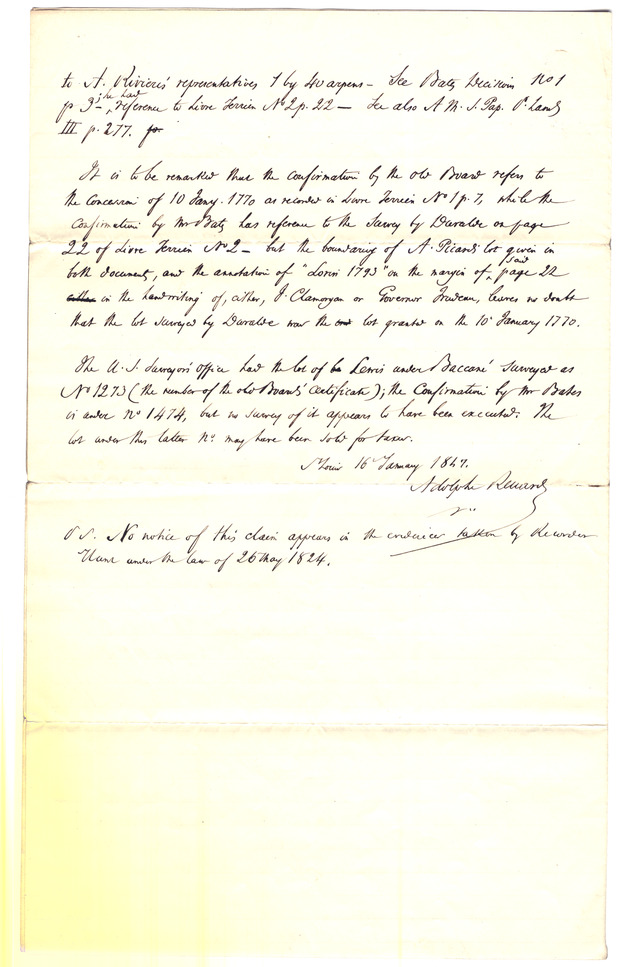 to A. Rivière's representatives 1 by 40 arpens – See Bates Decisions No 1
p 3 – he had reference to Livre Terrien No 2 p. 22 – See also A M. S. Pap. P. Lands
III p. 277.
It is to be remarked that the confirmation by the old Board refers to
the Concession of 10 Jany. 1770 as recorded in Livre Terrien No 1 p. 7, while the
Confirmation by Mr Bates has reference to the Survey by Duralde on page
22 of Livre Terrien No 2 – but the boundaries of A. Picard's lot given in
both documents, and the annotation of "Lorin 1793" on the margin of said page 22
in the handwriting of, either, J. Clamorgan or Governor Trudeau, leaves no doubt
that the lot surveyed by Duralde was the lot granted on the 10 January 1770.
The U. S. Surveyor's office had the lot of Lewis under Baccané surveyed as
No 1273 (the number of the old Board's Certificate); the Confirmation by Mr Bates
is under no 1474, but no survey of it appears to have been executed: The
lot under this latter no. may have been sold for taxes.
St Louis 16 January 1847.
Adolphe Renard
P S. No notice of this claim appears in the evidence taken by Recorder
Hunt under the law of 26 May 1824.